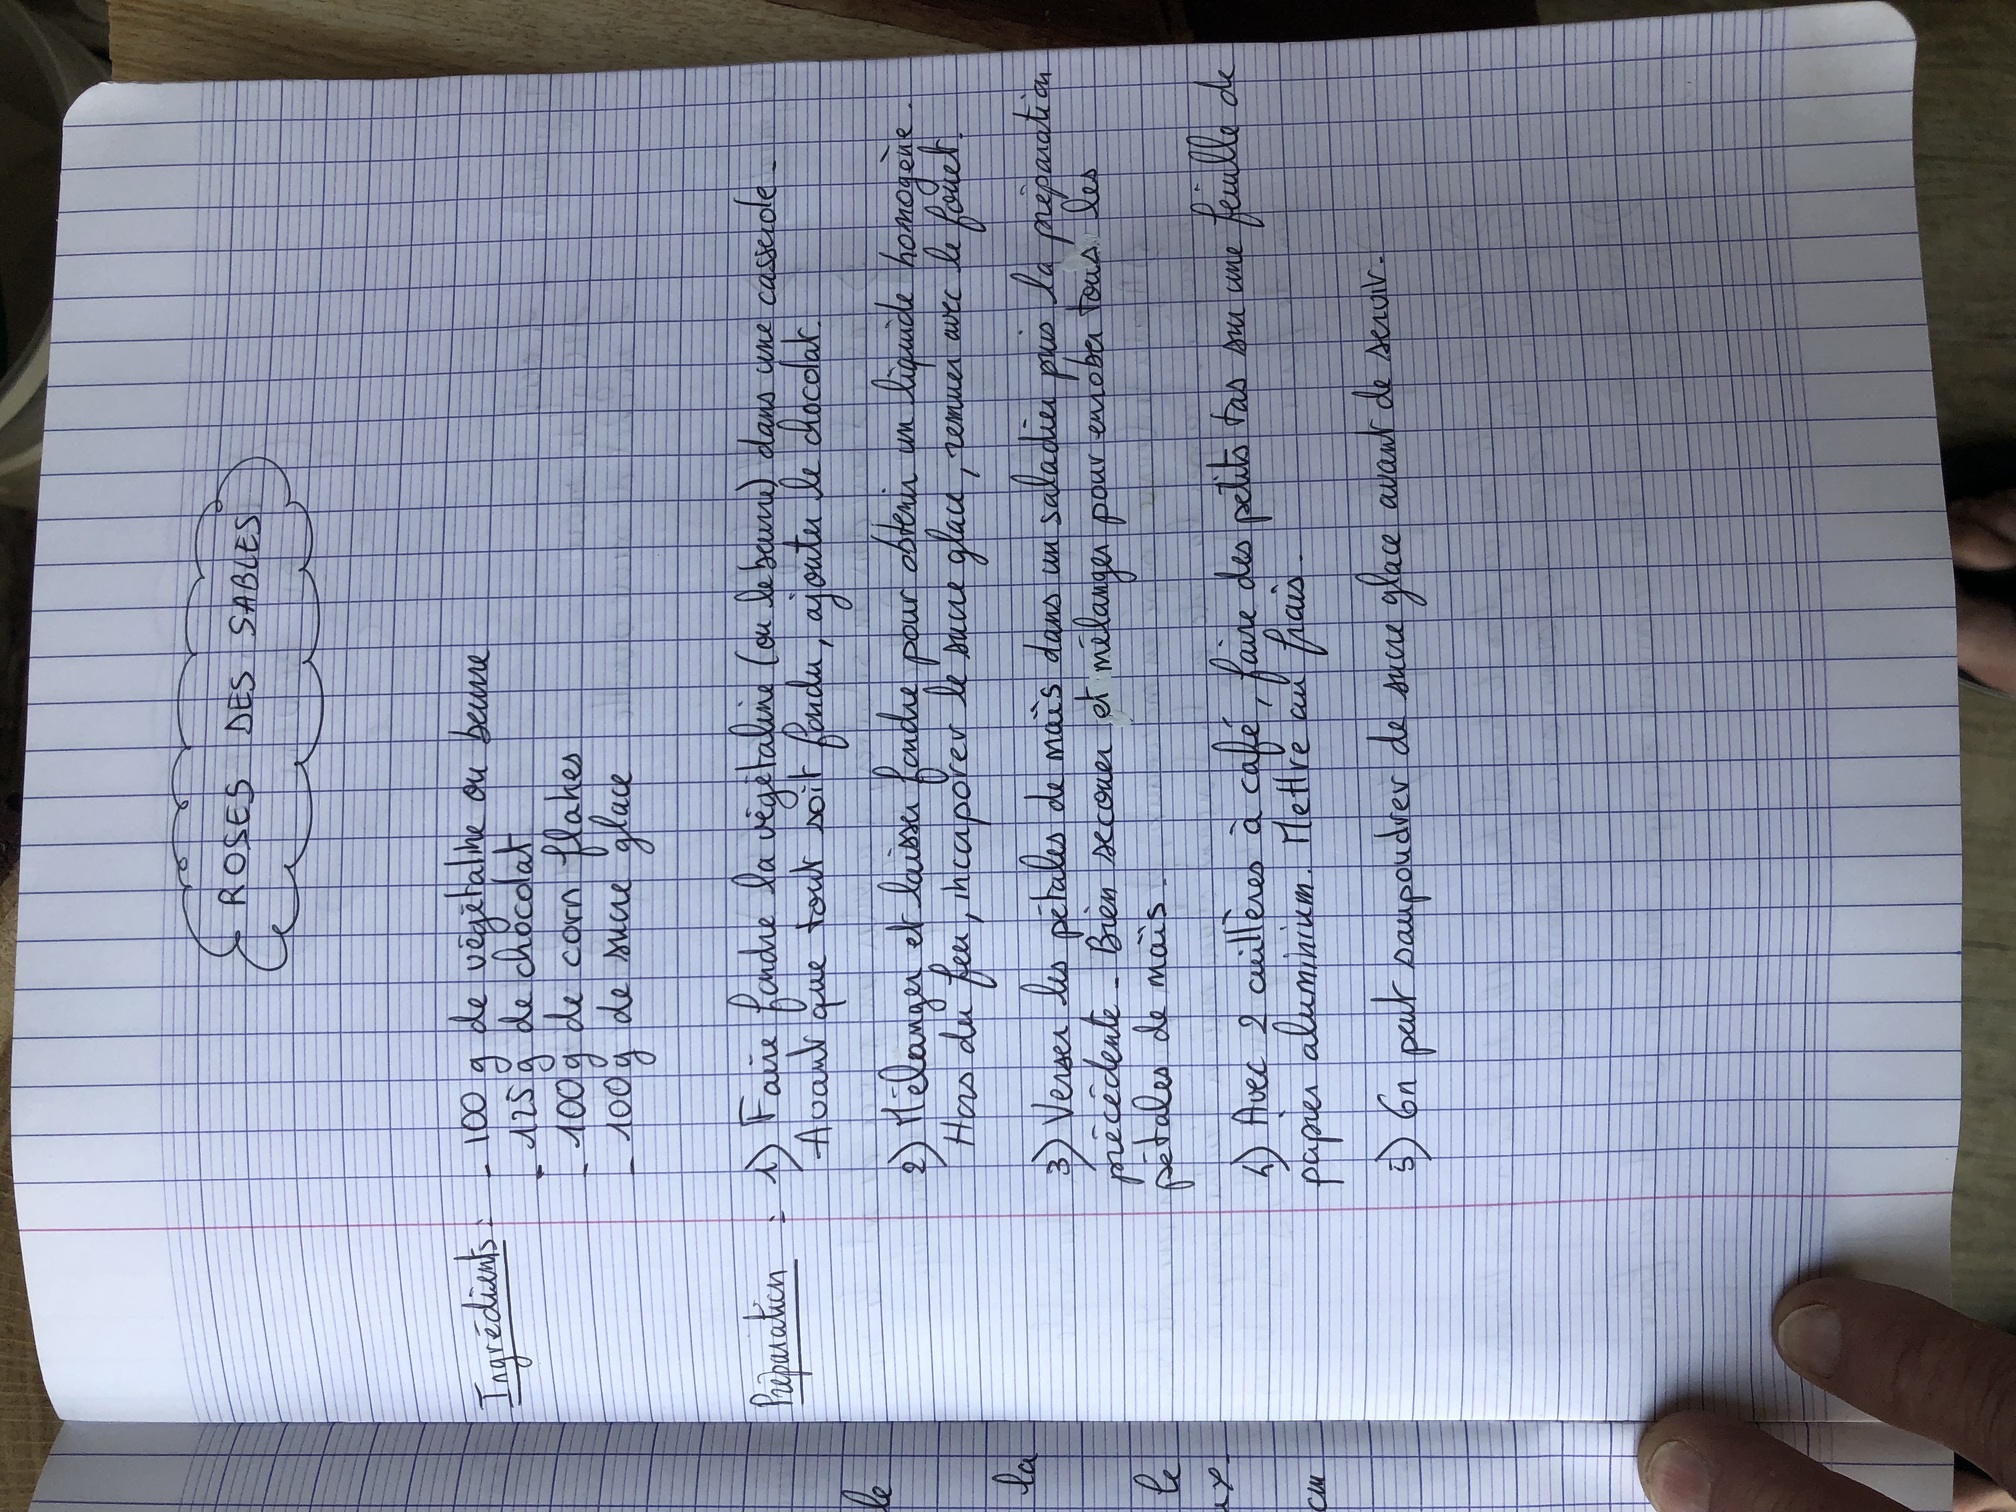 ROSES DES SABLES
Ingrédients : - 100 g de végétaline ou beurre
- 125 g de chocolat
- 100 g de corn flakes
- 100 g de sucre glace
Préparation : 1) Faire fondre la végétaline (ou le beurre) dans une casserole.
Avant que tout soit fondu, ajouter le chocolat.
2) Mélanger et laisser fondre pour obtenir un liquide homogène.
Hors du feu, incorporer le sucre glace, remuer avec le fouet.
3) Verser les pétales de maïs dans un saladier puis la préparation
précédente - Bien secouer et mélanger pour enrober tous les
pétales de maïs -
4) Avec 2 cuillères à café, faire des petits tas sur une feuille de
papier aluminium. Mettre au frais -
5) On peut saupoudrer de sucre glace avant de servir.
le
la
le
cm